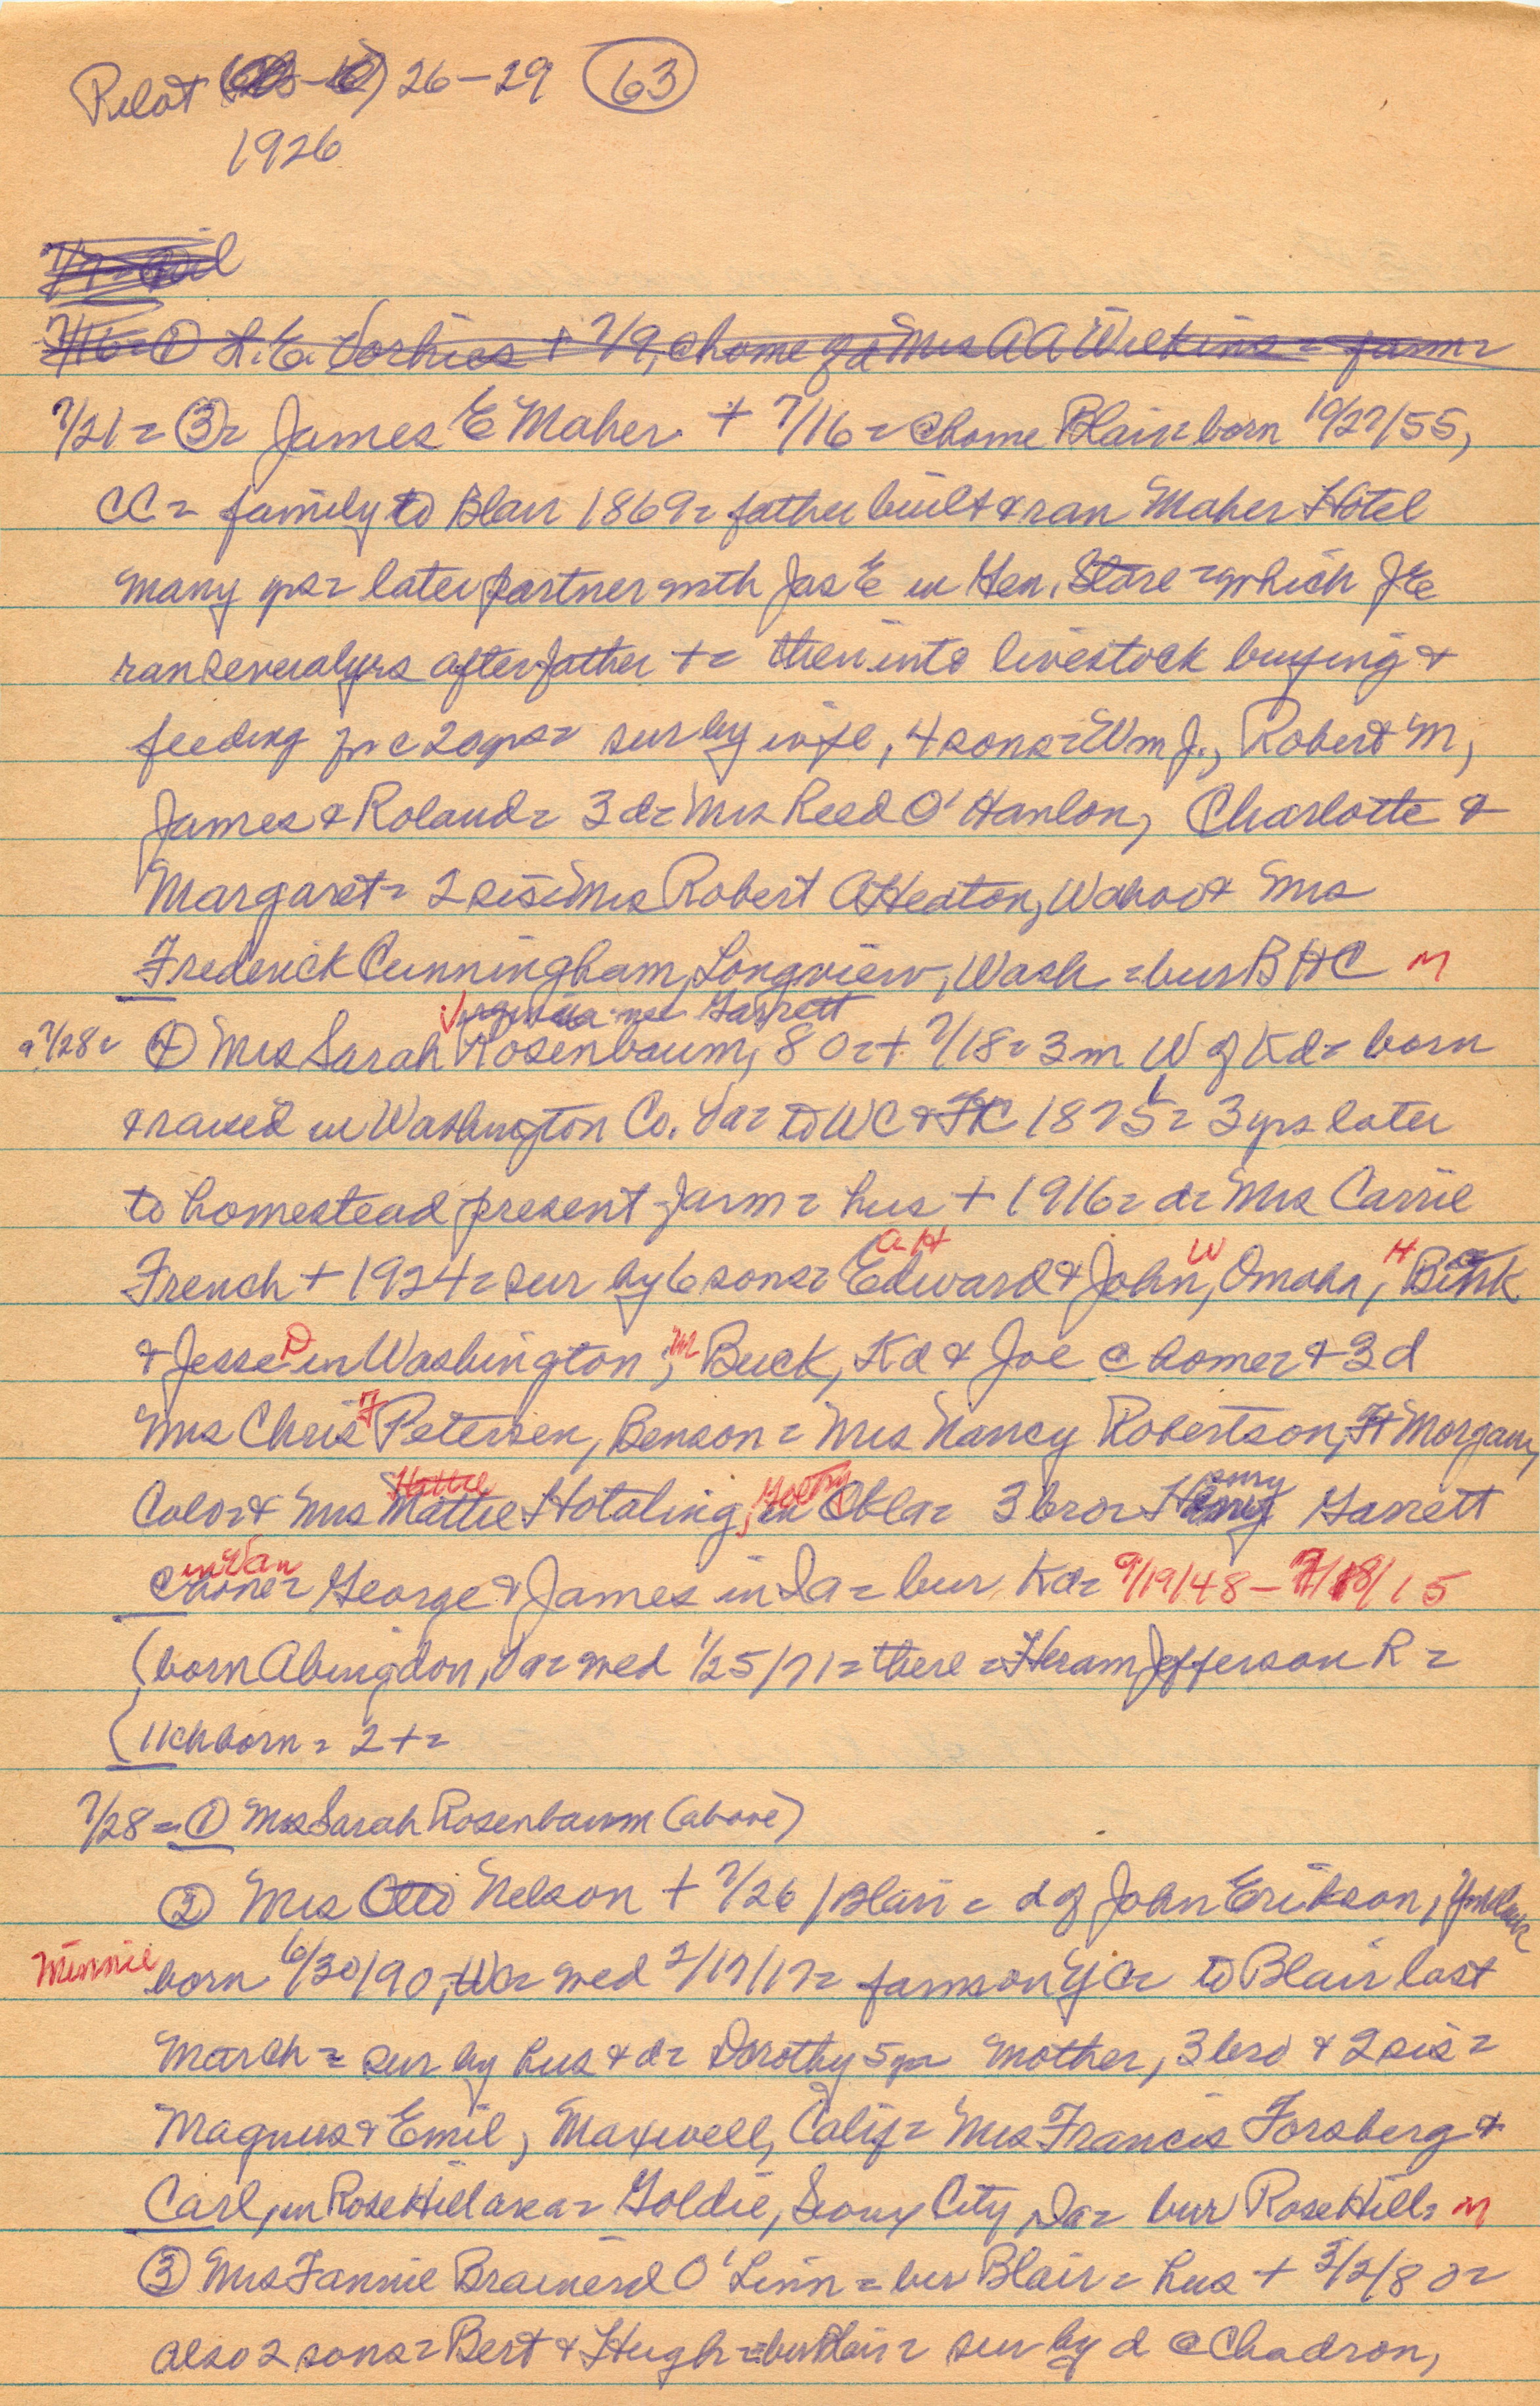 Pilot 26-29 (63)
1926
7/16= ① H.E. Vorhies + 7/9, @ home of d Mrs A A Wilkins = farm =
7/21= ③= James E Maher + 7/16= @ home Blair= born 10/27/55,
CC= family to Blair 1869= father built & ran Maher Hotel
many yrs= later partner with Jas E in Gen. Store= which JE
ran several yrs after father += then into livestock buying &
feeding for c 20 yrs= sur by wife, 4 sons= Wm J., Robert M,
James & Roland= 3 d= Mrs Reed O'Hanlon, Charlotte &
Margaret= 2 sis= Mrs Robert A Heaton, Wahoo & Mrs
Frederick Cunningham, Longview, Wash= bur BHC M
Virginia nee Garrett
7/28= ④ Mrs Sarah Rosenbaum, 80= + 7/18= 3 m W of Kd= born
& raised in Washington Co. Va= to WC & FC 1875= 3 yrs later
to homestead present farm= hus + 1916= d= Mrs Carrie
French + 1924= sur by 6 sons= Edward & John W, Omaha, H
& Jesse D in Washington; M Buck, Kd & Joe @ home= & 3 d
Mrs Chris F Petersen, Benson= Mrs Nancy Robertson, Ft Morgan,
Colo= & Mrs Mattie Hotaling, in Okla= 3 bro= Henry Garrett
in Van
@ home= George & James in Ia= bur Kd= 9/19/48 - 7/18/15
(born Abingdon, Va= wed 1/25/71= there= Hiram Jefferson R=
(11 ch born= 2 +=
7/28= ① Mrs Sarah Rosenbaum (above)
② Mrs Otto Nelson + 7/26/Blair= d of John Erikson,
Minnie born 6/30/90, WC= wed 2/17/17= farms on YC= to Blair last
March= sur by hus & d= Dorothy 5 yr= mother, 3 bro & 2 sis=
Magnus & Emil, Maxwell, Calif= Mrs Francis Forsberg &
Carl, in Rose Hill area= Goldie, Sioux City, Ia= bur Rose Hill= M
③ Mrs Fannie Brainerd O'Linn= bur Blair= hus + 3/2/80=
also 2 sons= Bert & Hugh= bur Blair= sur by d @ Chadron,